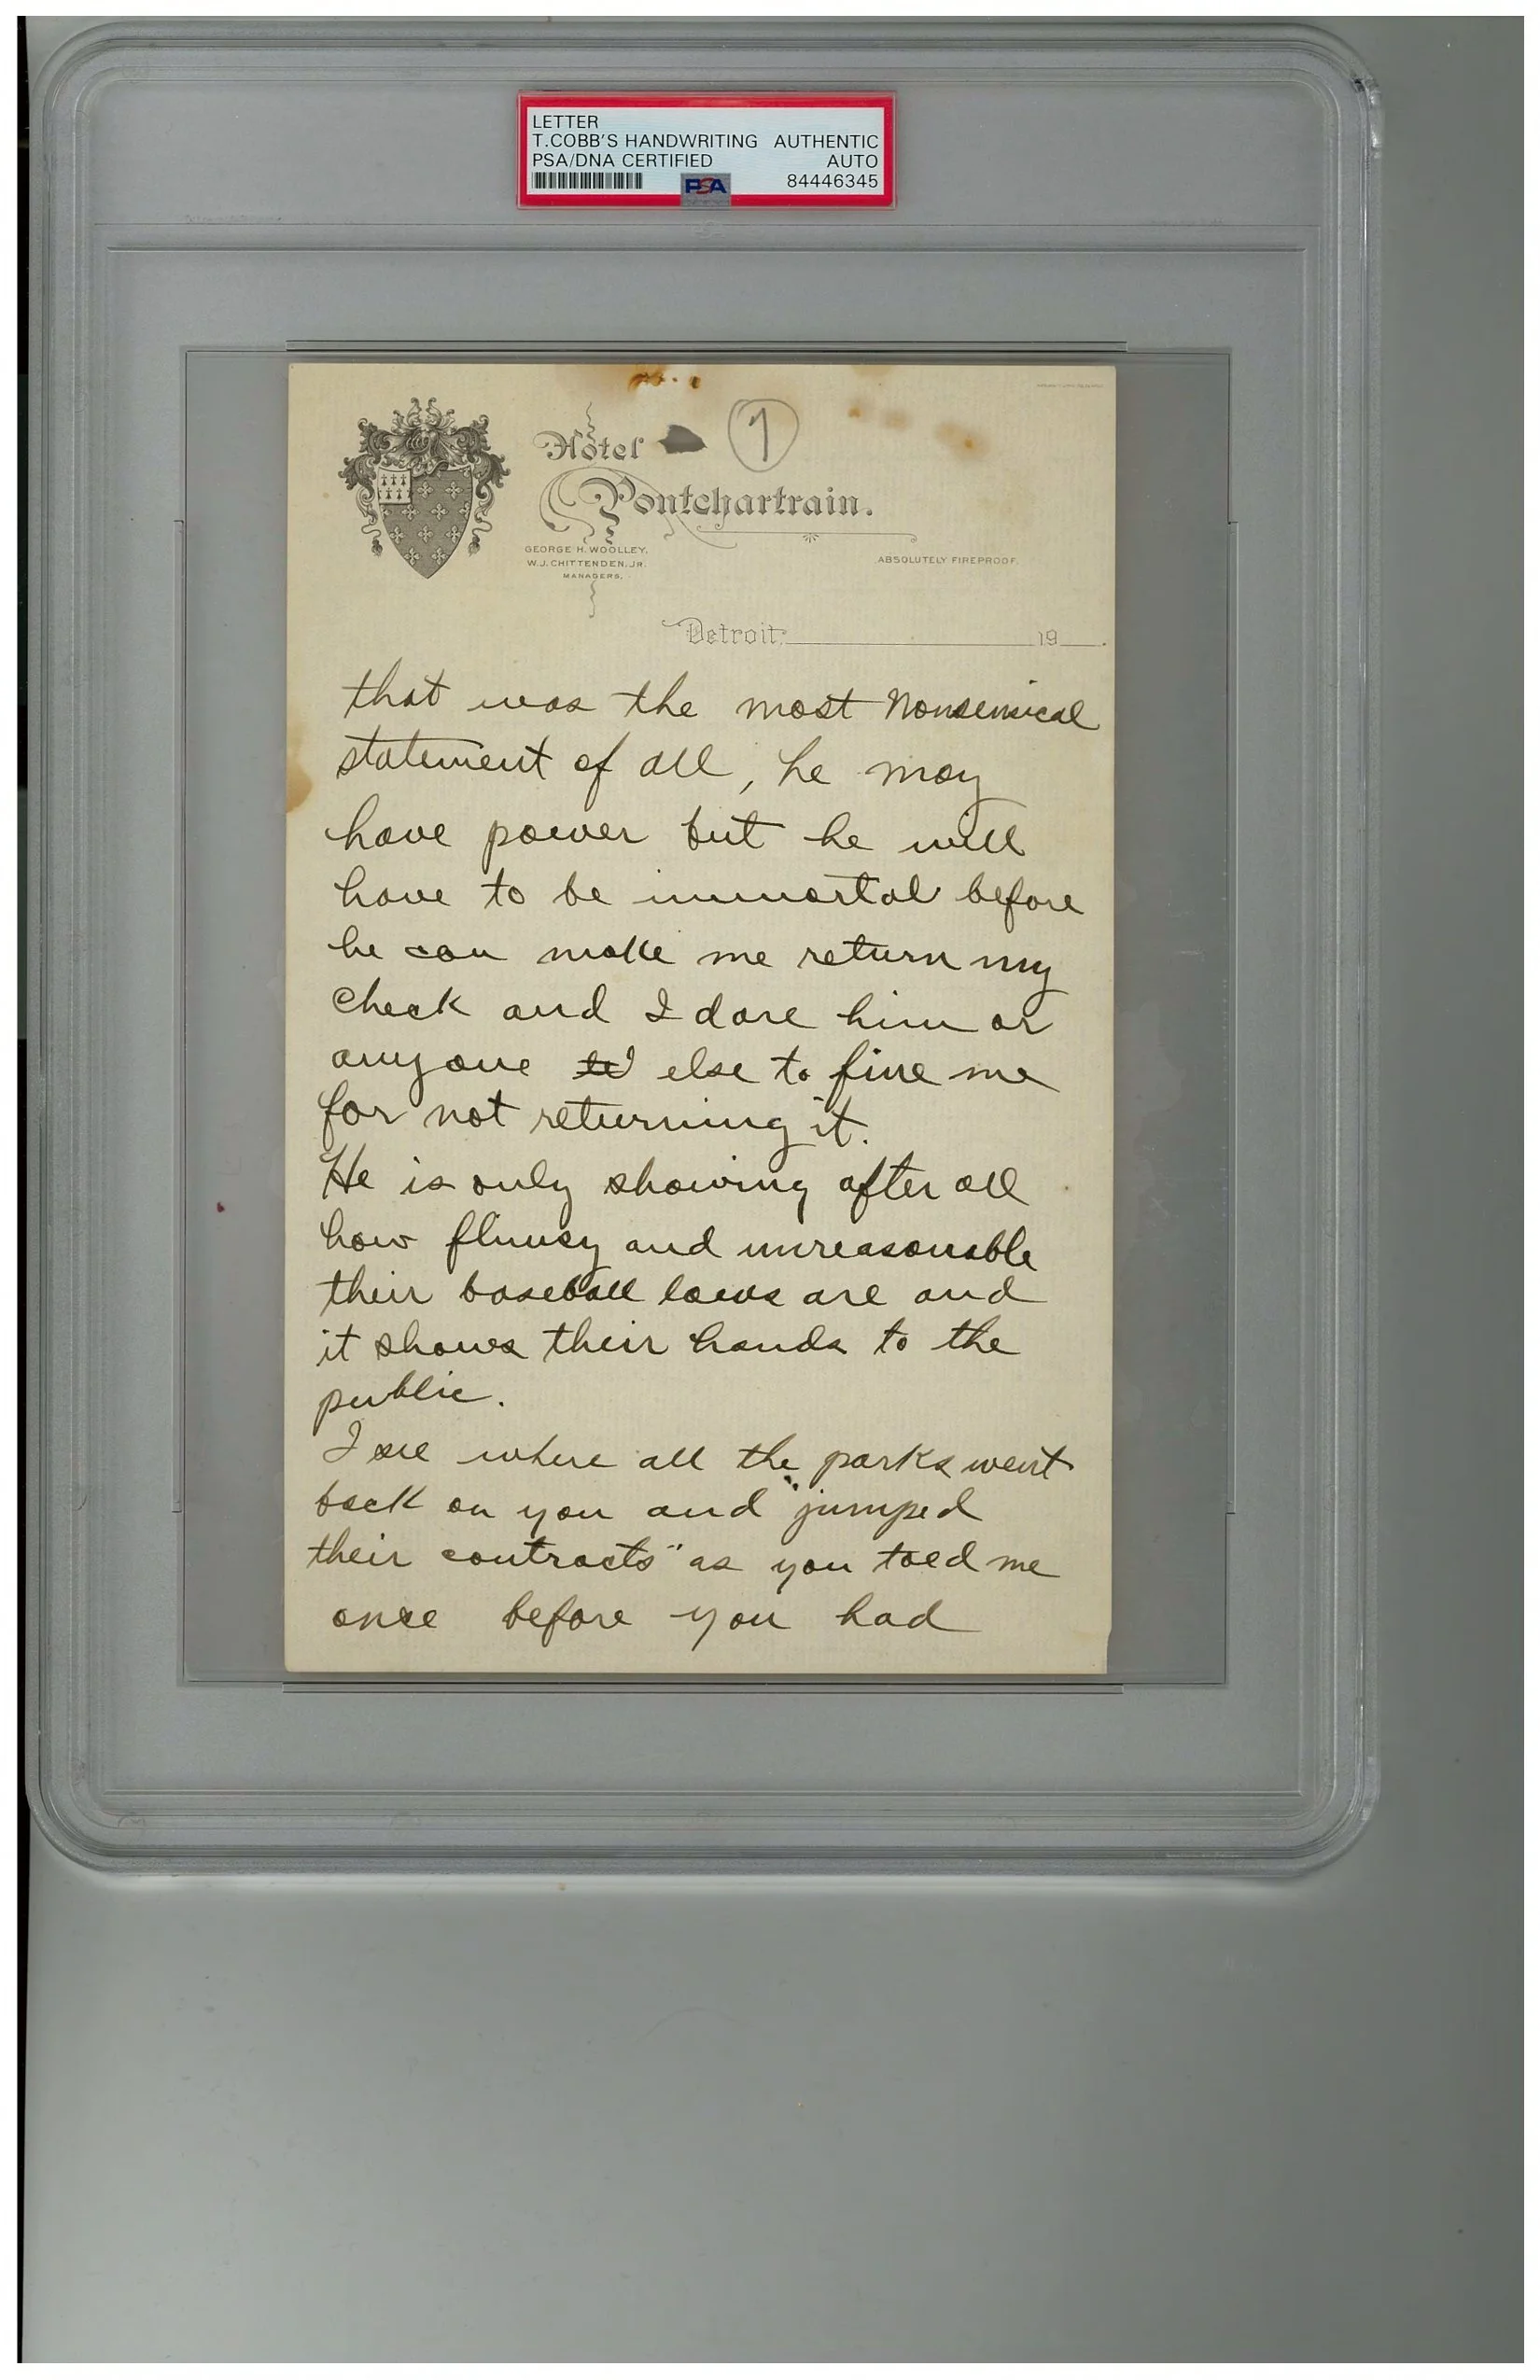 LETTER
T.COBB'S HANDWRITING AUTHENTIC
PSA/DNA CERTIFIED AUTO
PSA 84446345
Hotel 1
Pontchartrain.
GEORGE H. WOOLLEY.
W.J. CHITTENDEN, JR.
MANAGERS.
ABSOLUTELY FIREPROOF.
Detroit, 19
that was the most nonsensical
statement of all, he may
have power but he will
have to be immortal before
he can make me return my
check and I dare him or
anyone else to fine me
for not returning it.
He is only showing after all
how flimsy and unreasonable
their baseball laws are and
it shows their hands to the
public.
I see where all the parks went
back on you and "jumped
their contracts" as you toed me
once before you had